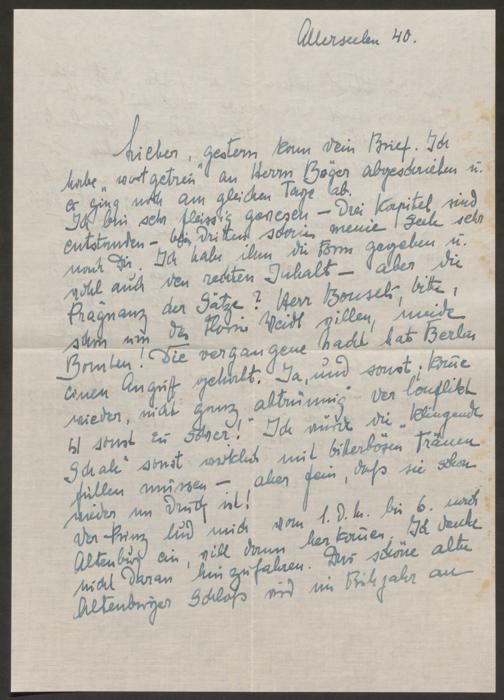 Allerseelen 40.
Lieber, gestern kam dein Brief. Ich
habe "wortgetreu" an Herrn Böger abgeschrieben u.
es ging noch am gleichen Tage ab.
Ich bin sehr fleissig gewesen – Drei Kapitel sind
entstanden – beim Dritten schrie meine Seele sehr
nach Dir. Ich habe ihm die Form gegeben u.
wohl auch den rechten Inhalt – aber die
Prägnanz der Sätze? Herr Bonsels, bitte,
schon um der willen, meide
Bomben! Die vergangene Nacht hat Berlin
einen Angriff gehabt. Ja, und sonst, komme
wieder, nicht ganz "abtrünnig" der Conflikt
ist sonst zu schwer!" Ich würde die "klingende
Schale" sonst wirklich mit bitterbösen Tränen
füllen müssen – aber fein, daß sie schon
wieder im Druck ist!
Der Prinz lud mich vom 1. d. M. bis 6. nach
Altenburg ein, will dann herkommen. Ich denke
nicht daran hinzufahren. Das schöne alte
Altenburger Schloß wird im Frühjahr an